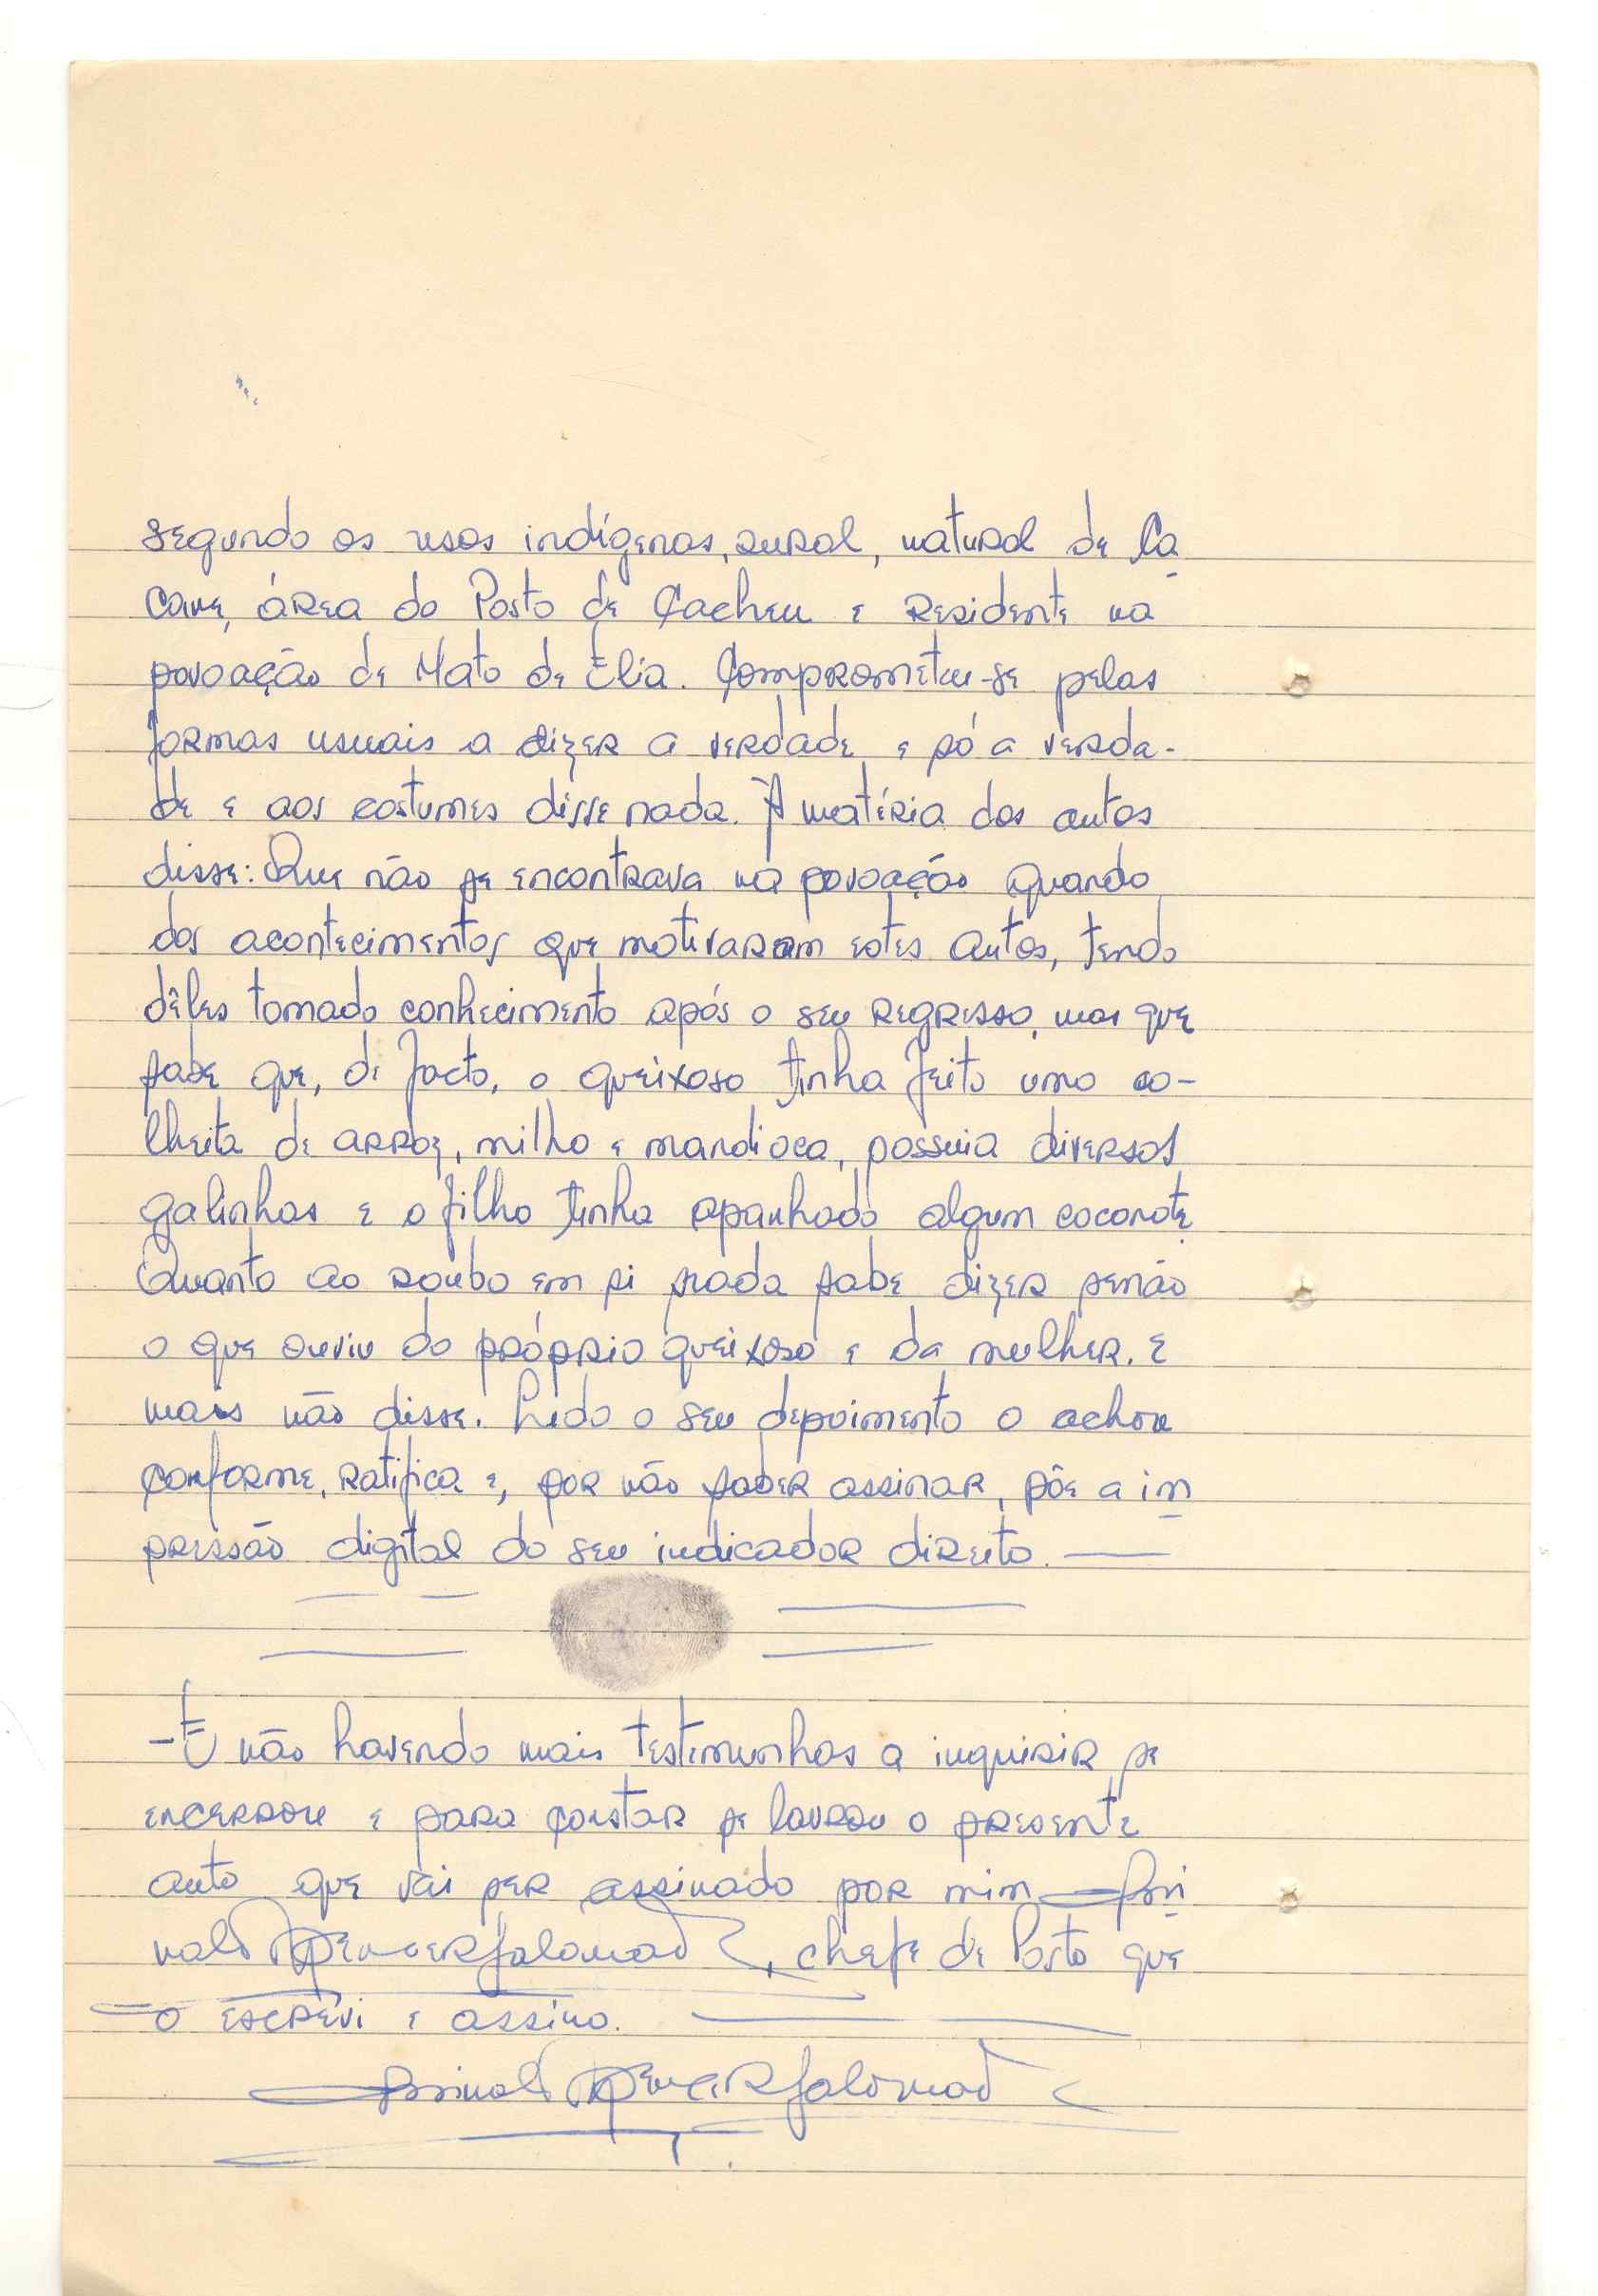 segundo os usos indígenas, rural, natural de Ca
cane, área do Posto de Cacheu e residente na
povoação de Mato de Elia. Comprometeu-se pelas
formas usuais a dizer a verdade e só a verda-
de e aos costumes disse nada. À matéria dos autos
disse: Que não se encontrava na povoação quando
dos acontecimentos que motivaram estes autos, tendo
dêles tomado conhecimento após o seu regresso, mas que
sabe que, de facto, o queixoso tinha feito uma co-
lheita de arroz, milho e mandioca, possuia diversas
galinhas e o filho tinha apanhado algum coconote
Quanto ao roubo em si nada sabe dizer senão
o que ouviu do próprio queixoso e da mulher. E
mais não disse. Lido o seu depoimento o achou
conforme, ratifica e, por não saber assinar, põe a im
pressão digital do seu indicador direito.
-E não havendo mais testemunhas a inquirir se
encerrou e para constar se lavrou o presente
auto que vai ser assinado por mim
, chefe de Posto que
o escrevi e assino.